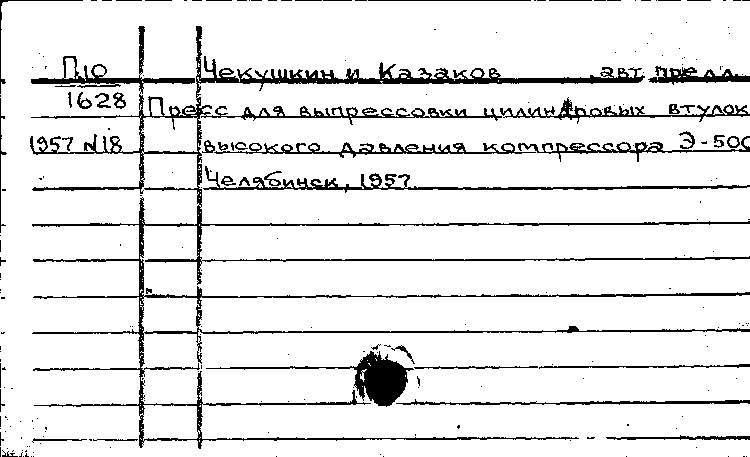 П10 Чекушкин и Казаков авт. предл.
1628 Пресс для выпрессовки цилиндровых втулок
1957 №18 высокого давления компрессора Э-500
Челябинск, 1957